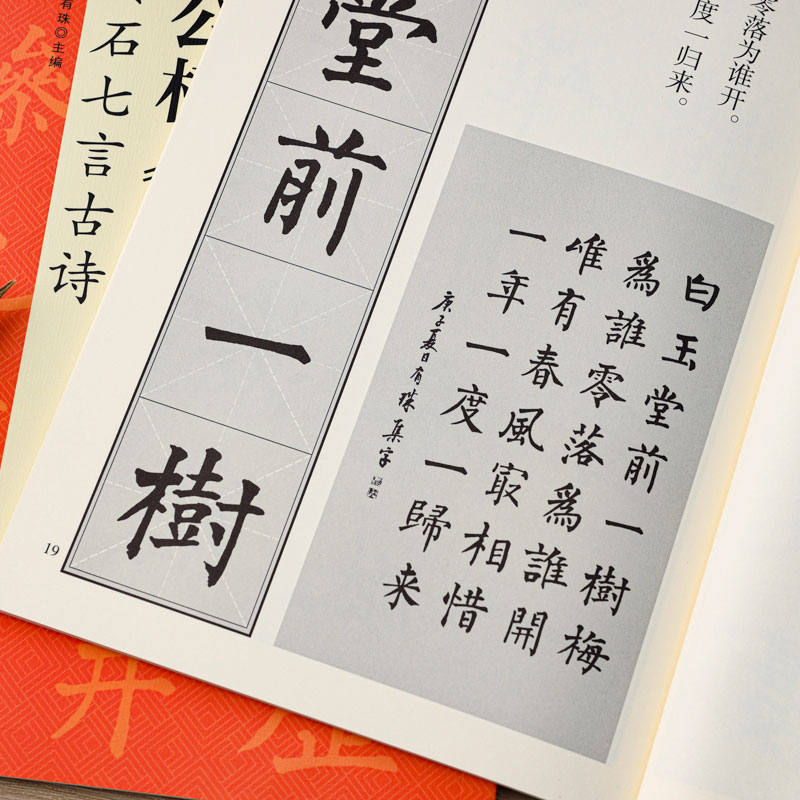 零落为谁开。
度一归来。
白玉堂前一樹梅
爲誰零落爲誰開
唯有春風㝡相惜
一年一度一歸来
庚子夏日有珠集字
堂前一樹
19
石七言古诗
有珠◎主编